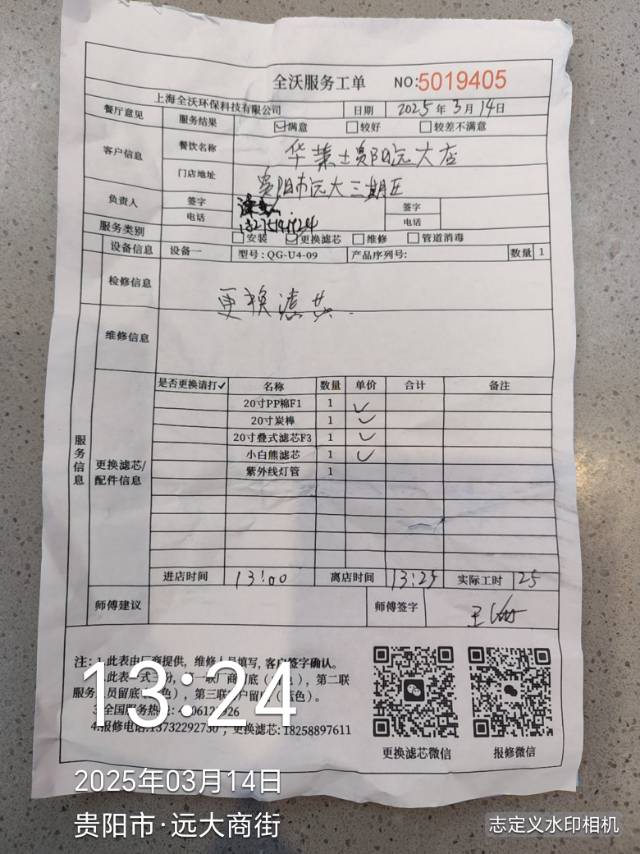 全沃服务工单 NO:5019405
上海全沃环保科技有限公司 日期 2025年3月14日
餐厅意见 服务结果 ☑满意 □较好 □较差不满意
客户信息 餐饮名称 华莱士贵阳远大店
门店地址 贵阳市远大三期
负责人 签字 签字
电话 电话
服务类别 □安装 ☑更换滤芯 □维修 □管道消毒
设备信息 设备一 型号:QG-U4-09 产品序列号: 数量 1
检修信息
更换滤芯
维修信息
服务信息
更换滤芯/配件信息
是否更换请打✓ 名称 数量 单价 合计 备注
20寸PP棉F1 1 ✓
20寸炭棒 1 ✓
20寸叠式滤芯F3 1 ✓
小白熊滤芯 1 ✓
紫外线灯管 1
进店时间 13:00 离店时间 13:25 实际工时 25
师傅建议 师傅签字
注:1.此表由厂商提供,维修人员填写,客户签字确认。
4.报修电话:13732292730,更换滤芯:18258897611
更换滤芯微信 报修微信
13:24
2025年03月14日
贵阳市·远大商街
志定义水印相机